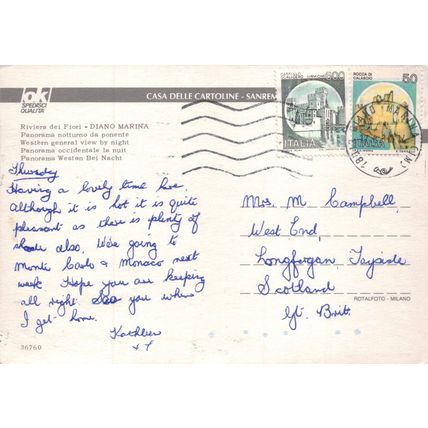 ok
SPEDISCI
QUALITÀ
CASA DELLE CARTOLINE - SANREM
600
ITALIA
ROCCA DI
CALASCIO
50
ITALIA
Riviera dei Fiori - DIANO MARINA
Panorama notturno da ponente
Western general view by night
Panorama occidentale la nuit
Panorama Westen Bei Nacht
Thursday
Having a lovely time here.
Although it is hot it is quite
pleasant as there is plenty of
shade also. We're going to
Monte Carlo & Monaco next
week. Hope you are keeping
all right. See you when
I get home.
Kathleen
Mrs. M Campbell,
West End,
Longforgan, Tayside
Scotland
Gt. Brit.
ROTALFOTO - MILANO
36760